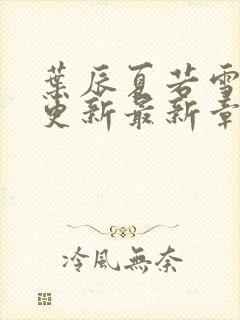 葉辰夏若雪
更新最新章
冷風無奈